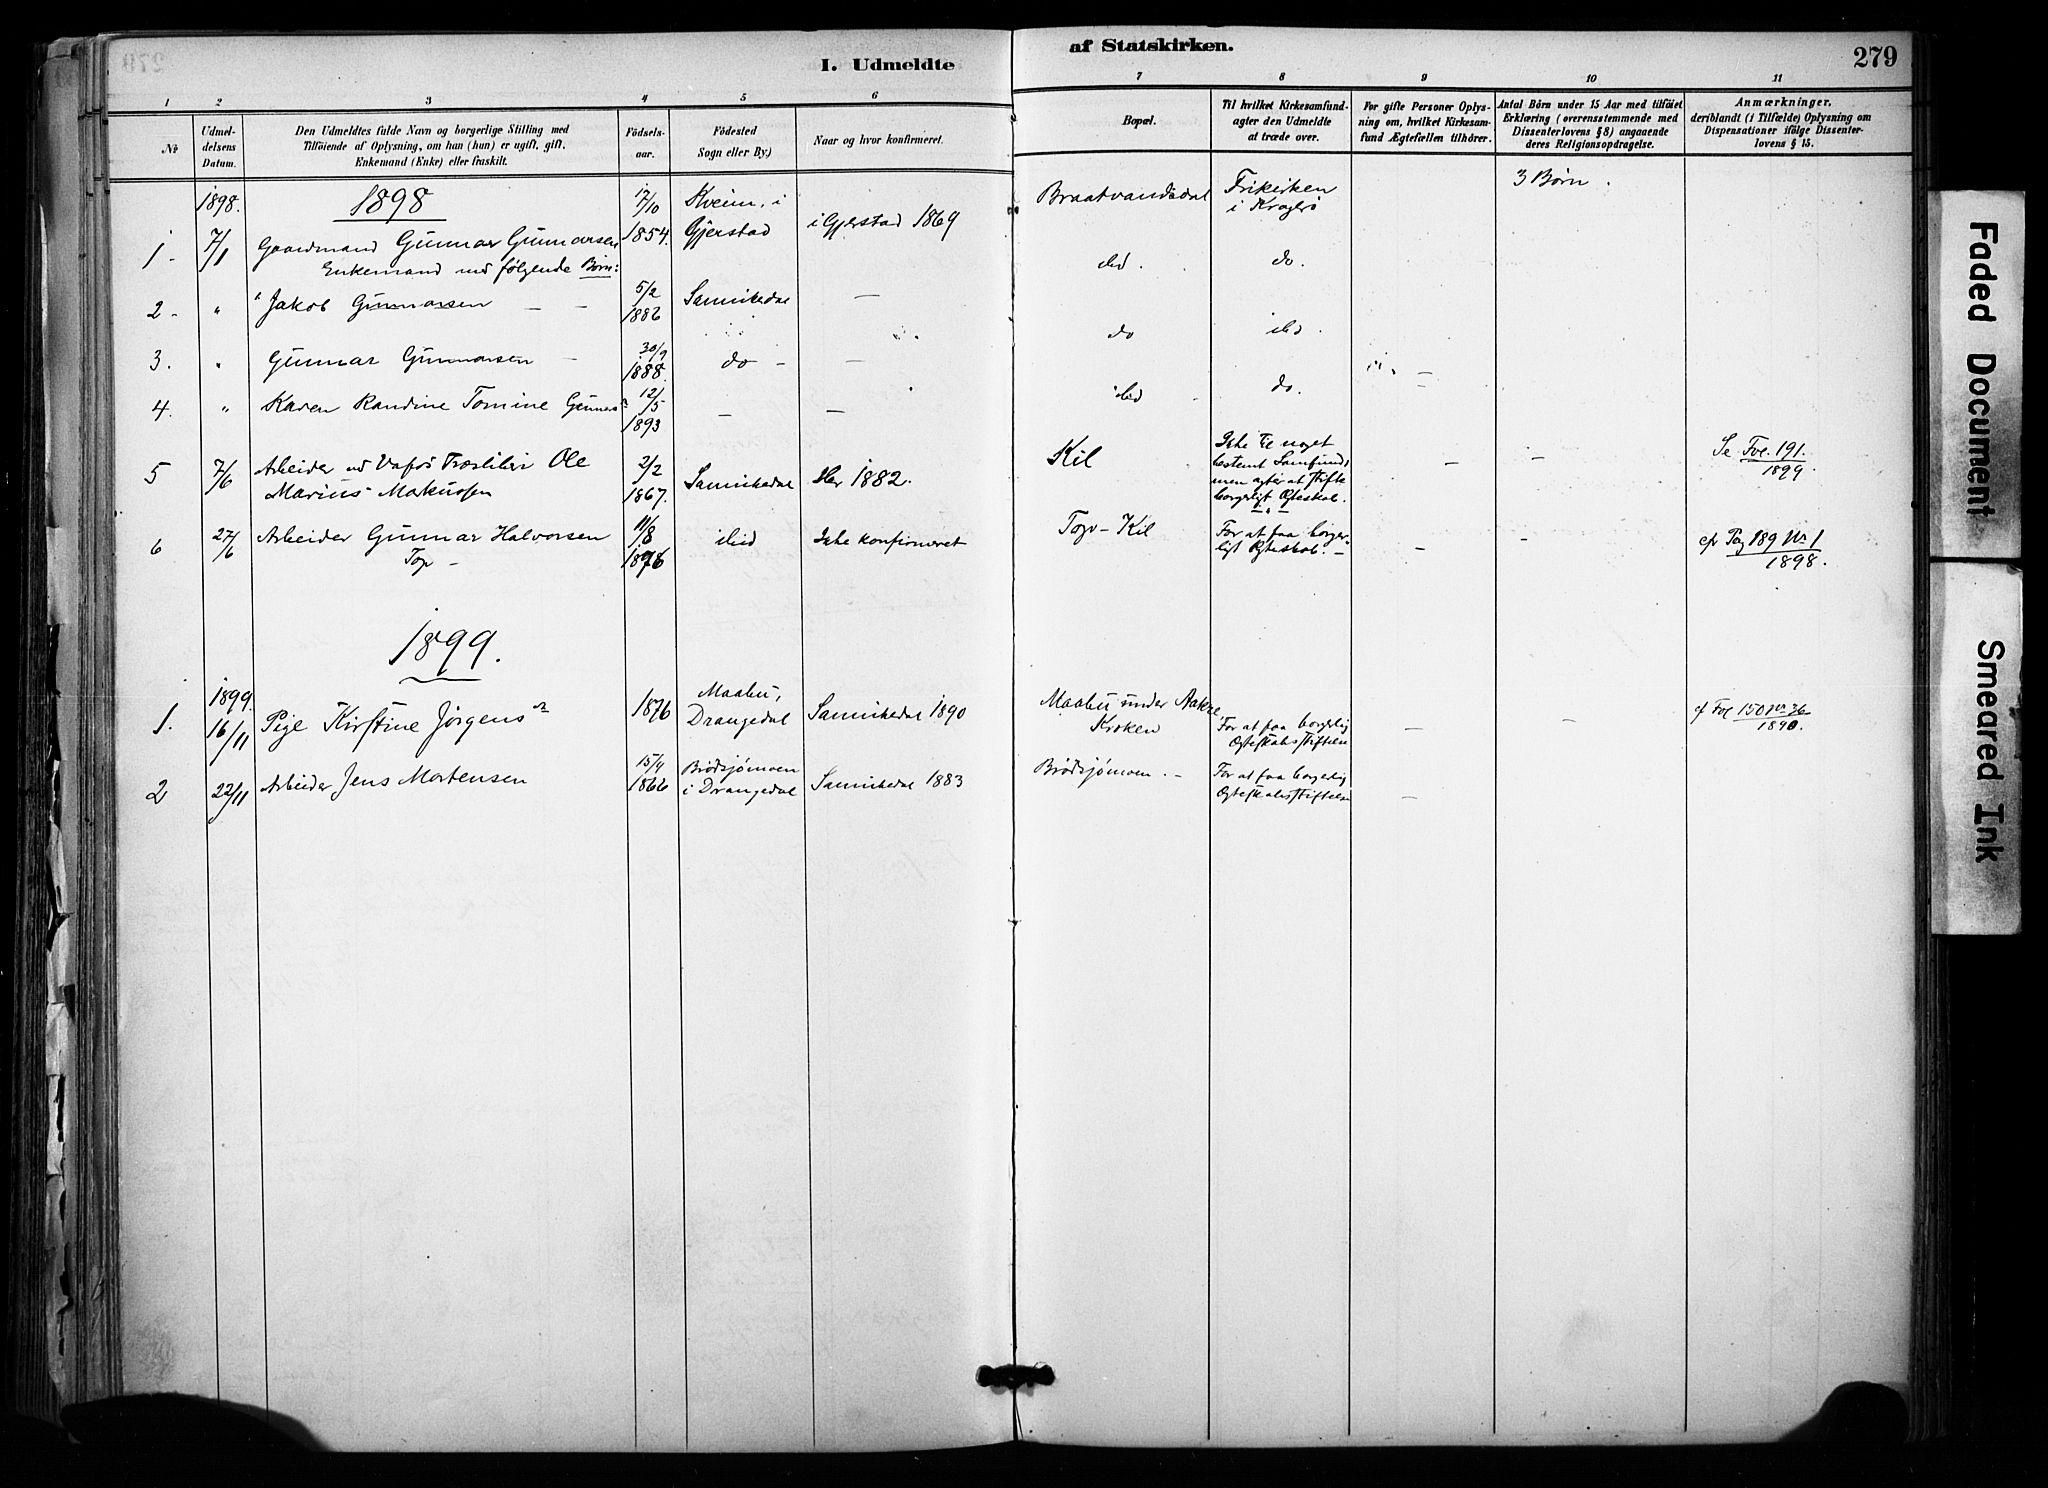 I. Udmeldte af Statskirken. 279
1 2 3 4 5 6 7 8 9 10 11
No
Udmel-
delsens
Datum.
Den Udmeldtes fulde Navn og borgerlige Stilling med
Tilföiende af Oplysning, om han (hun) er ugift, gift,
Enkemand (Enke) eller fraskilt.
Födsels-
aar.
Födested
Sogn eller By.)
Naar og hvor konfirmeret.
Bopæl.
Til hvilket Kirkesamfund-
agter den Udmeldte
at træde over.
For gifte Personer Oplys-
ning om, hvilket Kirkesam-
fund Ægtefællen tilhörer.
Antal Börn under 15 Aar med tilföiet
Erklæring (overensstemmende med
Dissenterlovens § 8) angaaende
deres Religionsopdragelse.
Anmærkninger,
deriblandt (i Tilfælde) Oplysning om
Dispensationer ifölge Dissenter-
lovens § 15.
1898. 1898 12/10 Kveim, i Braatvandsdal Frikirken 3 Børn.
i Kragerø
1 - 7/1 Gaardmand Gunnar Gunnarsen 1854. Gjerstad i Gjerstad 1869
Enkemand med følgende Børn: ibid. do.
2 - " Jakob Gunnarsen — — 5/2 1886 Sannikedal —
do ibid.
3. " Gunnar Gunnarsen — 30/9 1888. do — —
ibid do. —
4. " Karen Randine Tomine Gunnarsn 12/5 1893 — —
5 7/6 Arbeider ved Vafos Træsliberi Ole 2/2 Sannikedal Her 1882. Kil Ikke til noget — — Se Fol. 191.
Marius Markussen 1867. bestemt Samfund, 1899
men agter at stifte
borgerligt Ægteskab.
6 27/6 Arbeider Gunnar Halvorsen 11/8 ibid Ikke konfirmeret Top - Kil For at faa borger- — — cfr Pag 189 Nr 1
Top - 1876 ligt Ægteskab. — 1898.
1899.
1. 1899. 16/11 Pige Kirstine Jørgensn 1876 Maabu, Drangedal Sannikedal 1890 Maabu under Aakre For at faa borgerlig — — cf Fol 150 Nr 36
Kroken Ægteskabsstiftelse 1890.
2 22/11 Arbeider Jens Mortensen 15/4 1866 Brødsjømoen i Drangedal Sannikedal 1883 Brødsjømoen. — For at faa borgerlig —
Ægteskabsstiftelse
Faded Document
Smeared Ink